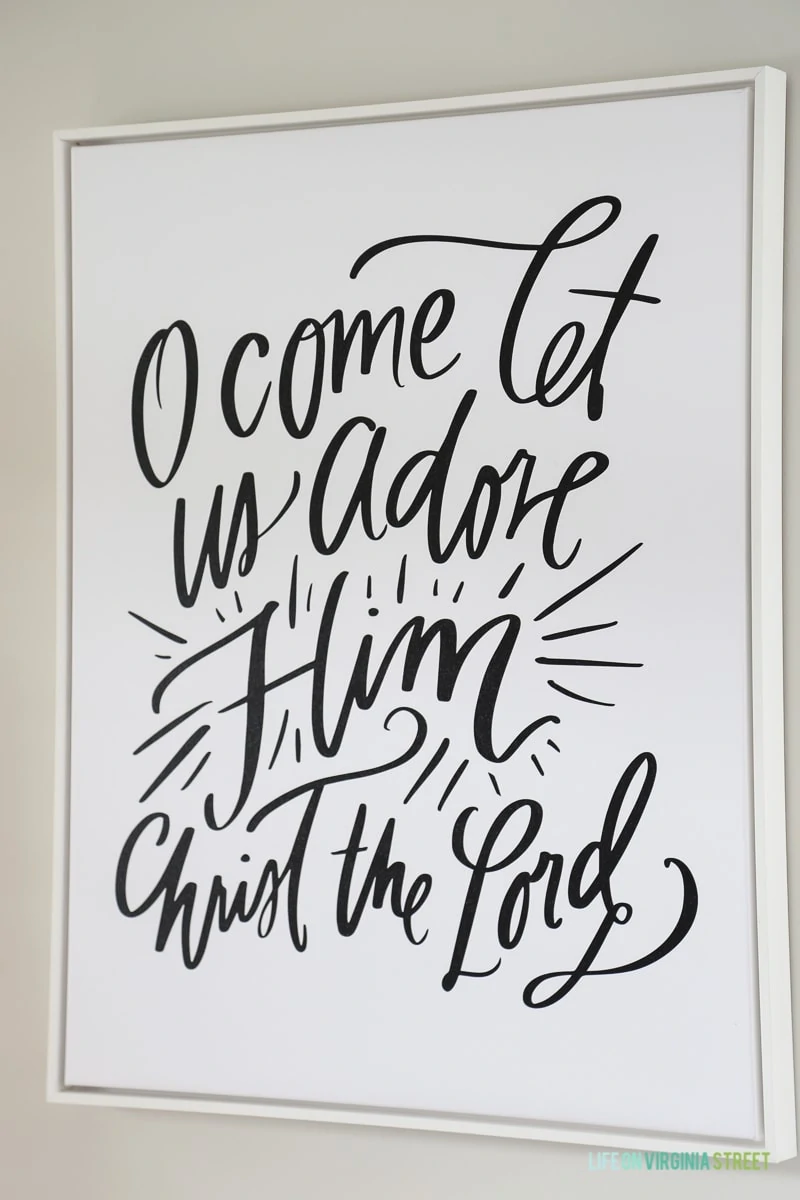 O come let
us adore
Him
Christ the Lord
LIFE ON VIRGINIA STREET